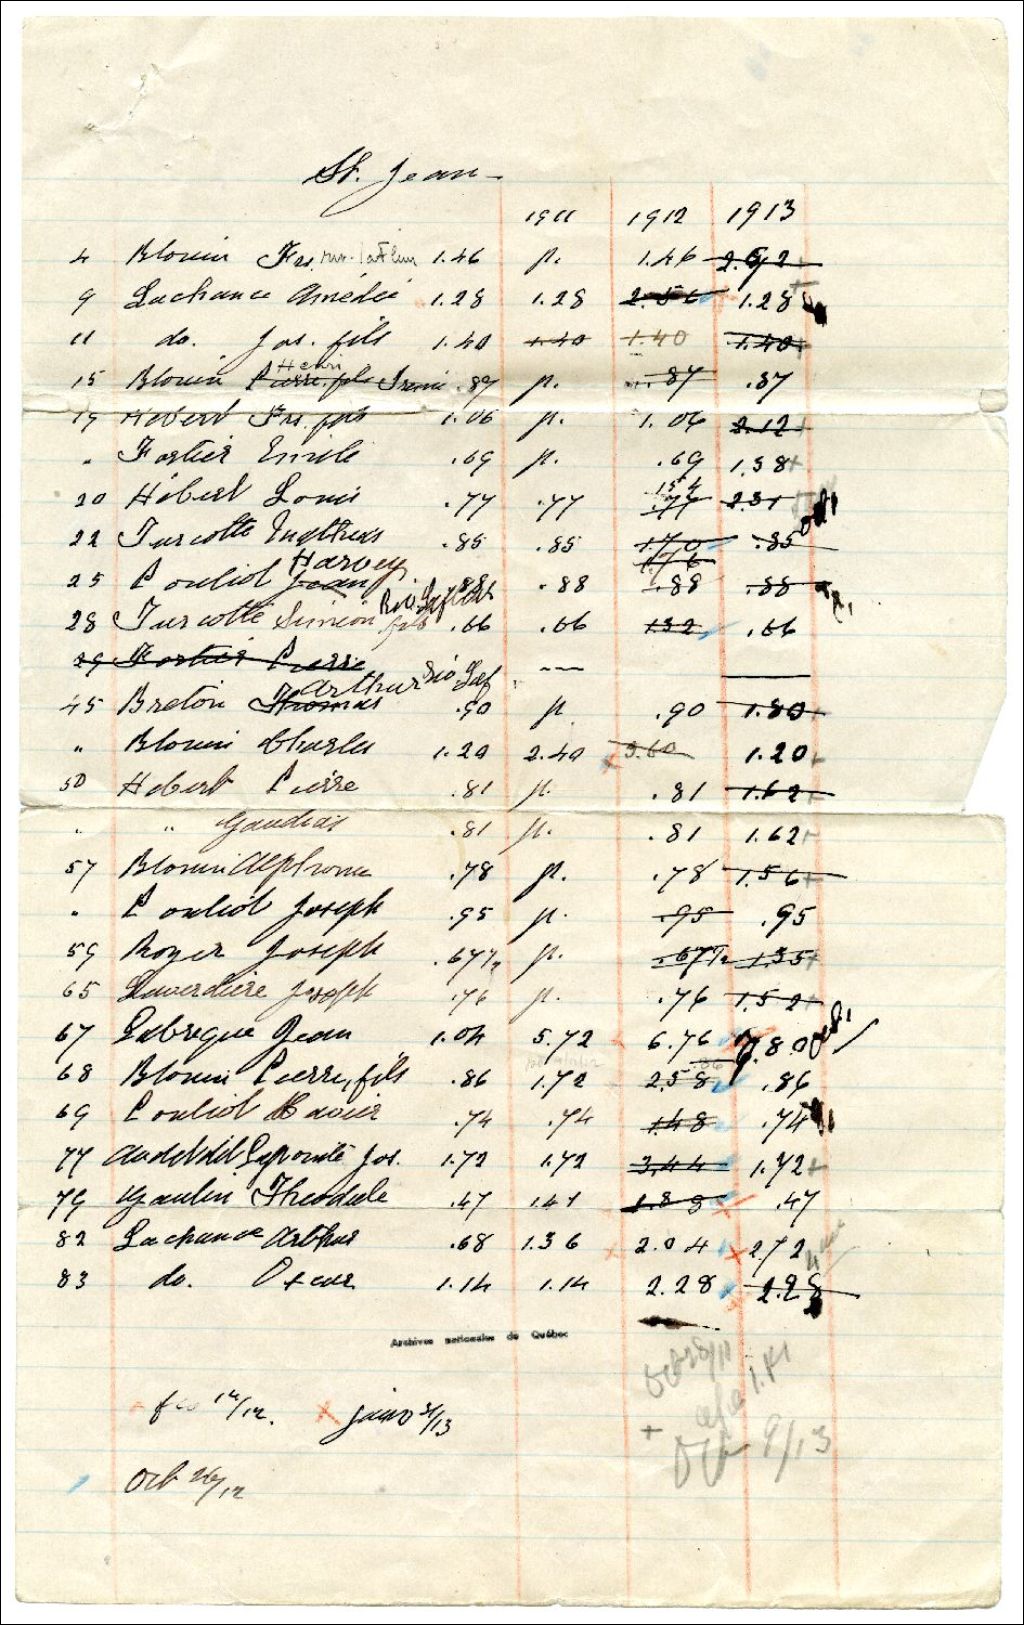 St. Jean -
1911 1912 1913
4 Blouin Frs. 1.46 p. 1.46
9 Lachance Amédée 1.28 1.28 2.56 1.28
11 do. Jos. fils 1.40 1.40 1.40 1.40
15 Blouin Pierre fils Henri .87 p. .87 .87
19 Hébert Frs. fils 1.06 p. 1.06 2.12
" Fortier Emile .69 p. .69 1.38+
20 Hébert Louis .77 .77 .77 1.54 2.31
22 Turcotte .85 .85 1.70 .85
25 Pouliot Jean Harvey .88 .88 .88 1.76 .88
28 Turcotte Siméon fils .66 .66 1.32 .66
29 Fortier Pierre —
45 Breton Thomas Arthur .90 p .90 1.80
" Blouin Charles 1.20 2.40 3.60 1.20
50 Hébert Pierre .81 p. .81 1.62
" " Gaudias .81 p. .81 1.62
57 Blouin Alphonse .78 p. .78 1.56
" Pouliot Joseph .95 p. .95 .95
59 Royer Joseph .67½ p. .67½ 1.35
65 Laverdiere Joseph .76 p. .76 1.52
67 Labreque Jean 1.04 5.72 6.76 7.80
68 Blouin Pierre, fils .86 1.72 2.58 .86
69 Pouliot Xavier .74 .74 1.48 .74
77 Audet dit Lapointe Jos. 1.72 1.72 3.44 1.72
79 Gaulin Théodule .47 1.41 1.88 .47
82 Lachance Arthur .68 1.36 2.04 2.72
83 do. Oscar 1.14 1.14 2.28 2.28
Archives nationales de Québec
x fev 14/12. x janv 31/13
+ Oct 9/13
Oct 26/12